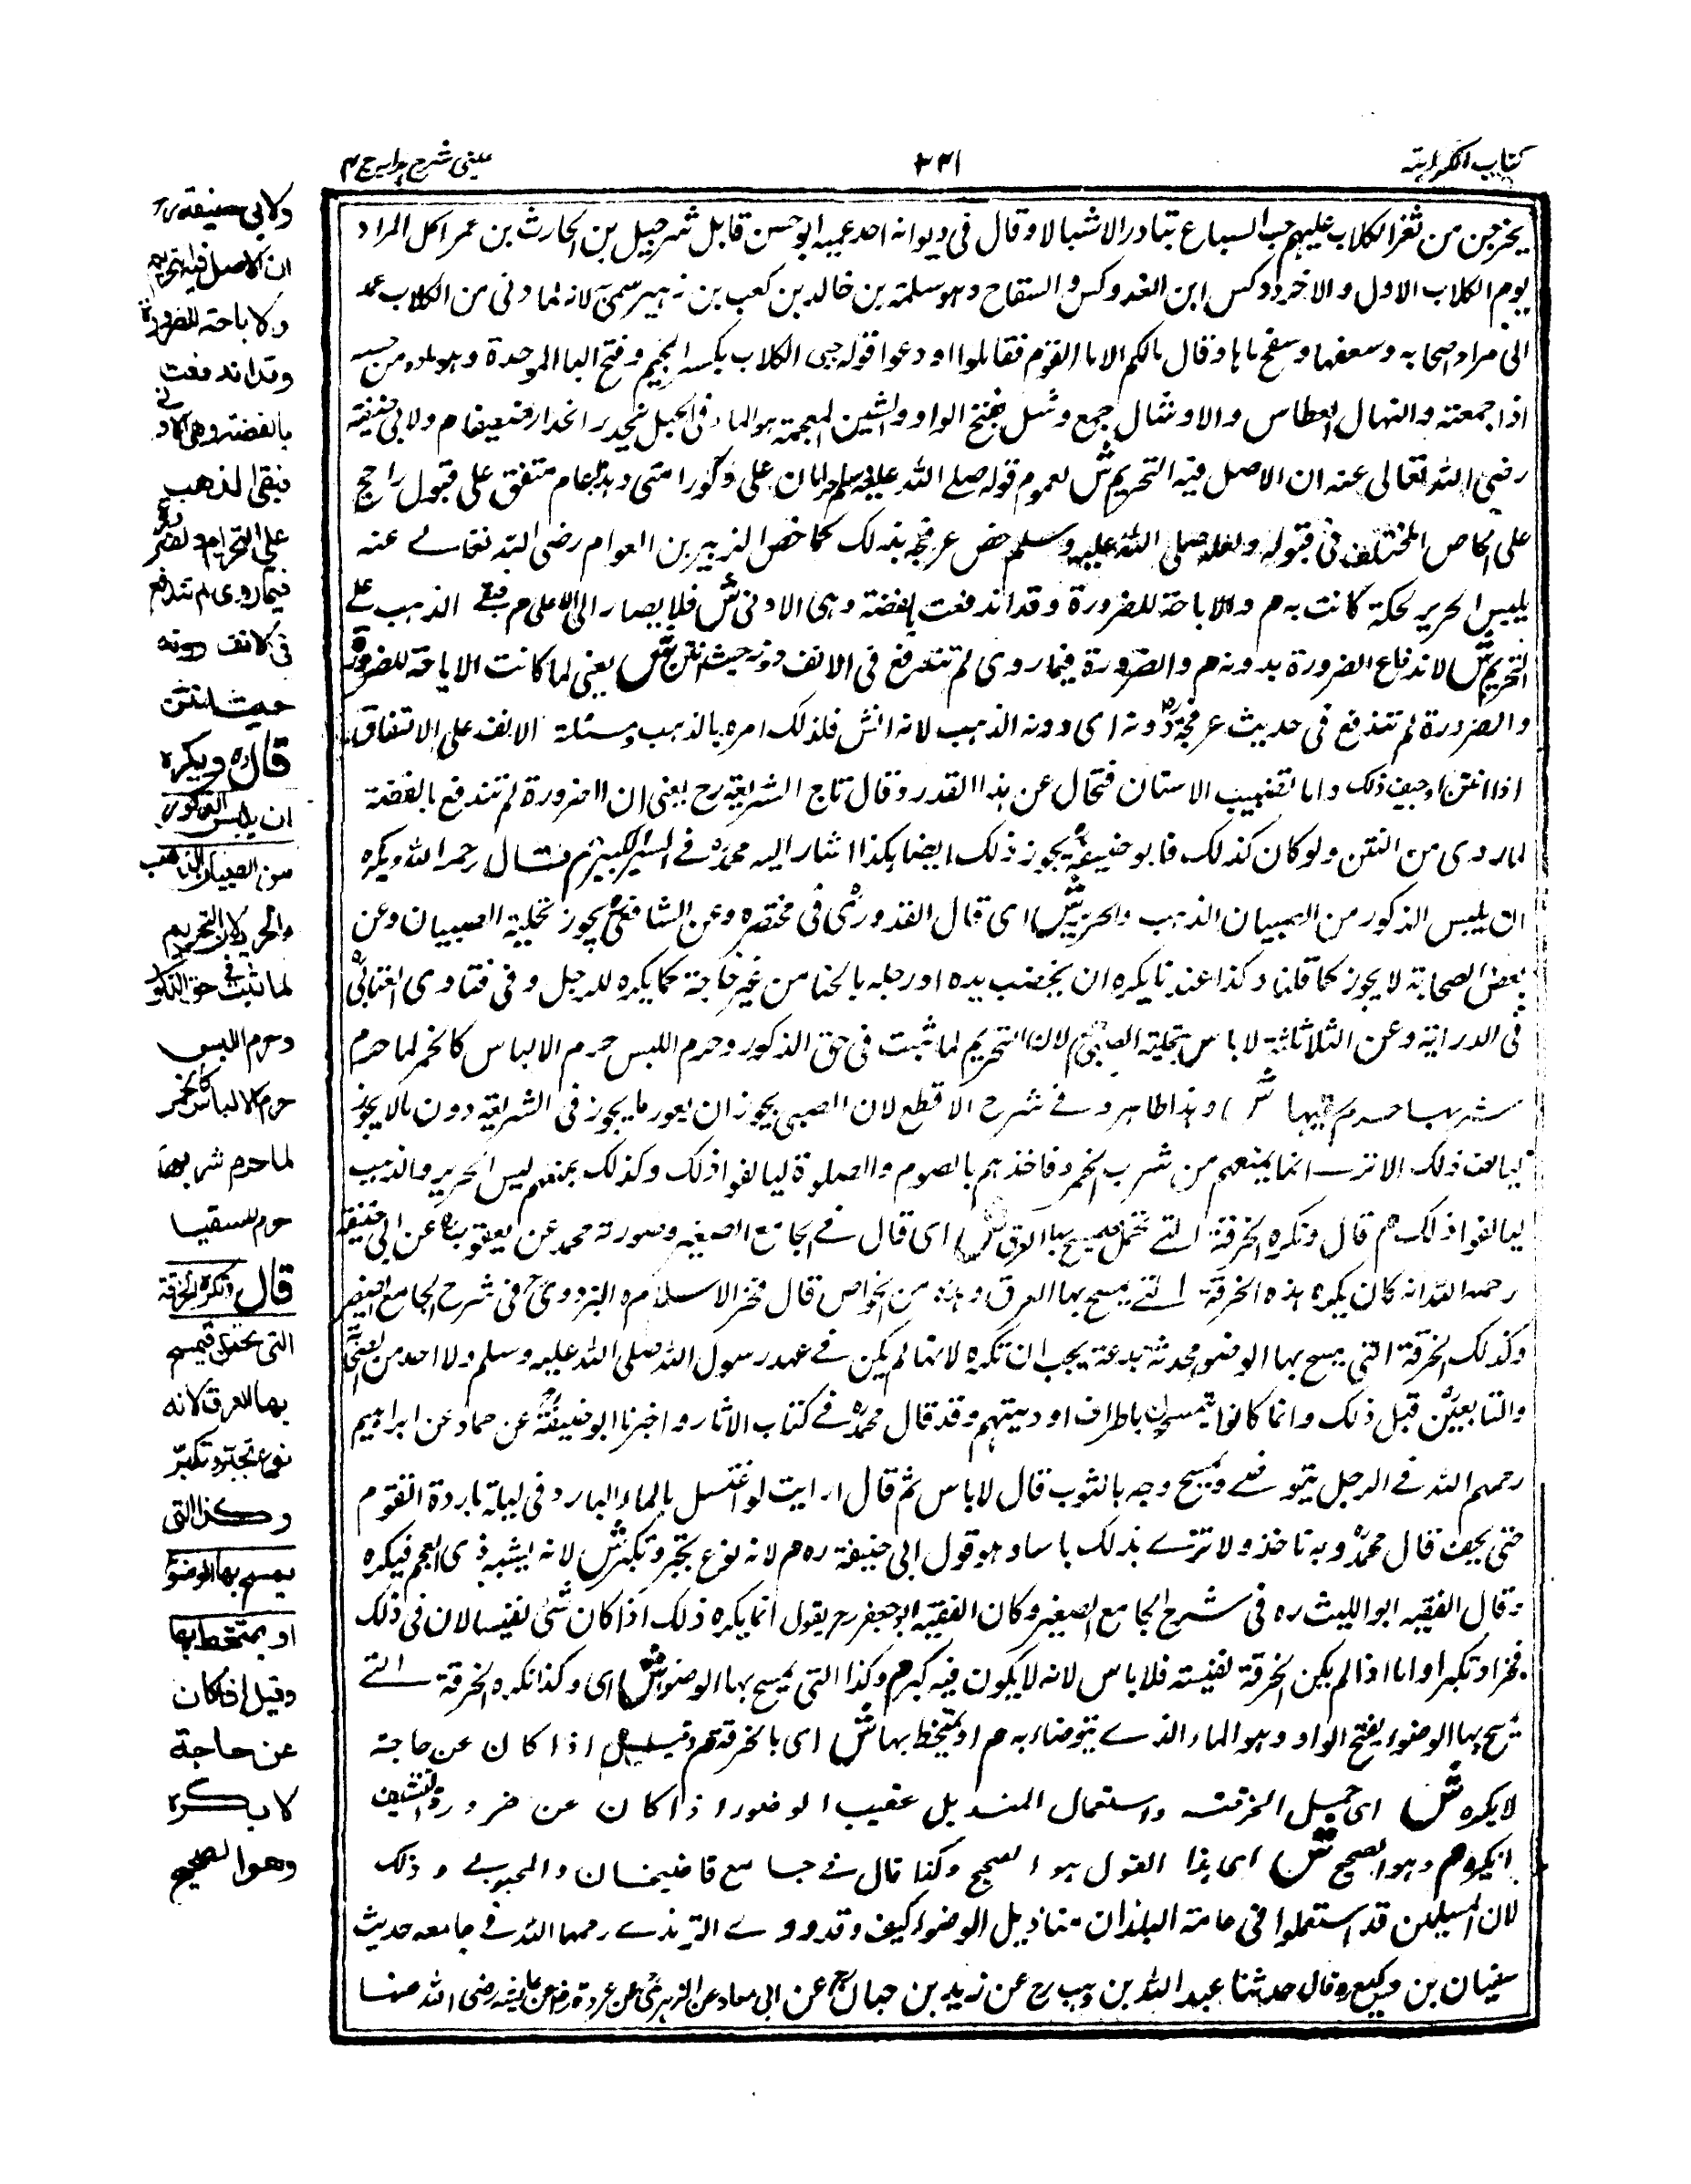 كتاب الكراهية
٣٣١
عينى شرح هدايه ج ٤
يخرجن من ثغر الكلاب عليهم جب السباع تبادر الاشبالا وقال فى ديوانه احد عميه ابو حسن قابل شرحبيل بن الحارث بن عمر اكل المرار
يوم الكلاب الاول والاخر دوكس ابن الفدوكس والسفاح وهو سلمة بن خالد بن كعب بن زهير سمى لانه لما دنى من الكلاب عمد
الى مراد اصحابه وسفح ماها وقال مالكم الا ما القوم فقاتلوا او دعوا قوله جبى الكلاب بكسر الجيم وفتح البا الموحدة وهو
اذا جمعته والنهال العطاس والاوشال جمع وشل بفتح الواو والشين المعجمة هو الماء فى الجبل ينحدر انحدارا ضعيفا م ولابى حنيفة
رضى الله تعالى عنه ان الاصل فيه التحريم ش لعموم قوله صلى الله عليه وسلم حرامان على ذكور امتى وهذا عام متفق على قبوله راجح
على الخاص المختلف فى قبوله ولعله صلى الله عليه وسلم خص عرفجة بذلك كما خص الزبير بن العوام رضى الله تعالى عنه
بلبس الحرير لحكة كانت به م والاباحة للضرورة وقد اندفعت بالفضة وهى الادنى ش فلا يصار الى الاعلى م فبقى الذهب على
التحريم ش لاندفاع الضرورة بدونه م والضرورة فيما روى لم تندفع فى الانف دونه حيث انتن ش يعنى لما كانت الاباحة للضرورة
والضرورة لم تندفع فى حديث عرفجة دونه اى دون الذهب لانه انتن فلذلك امره بالذهب ومسئلة الانف على الاتفاق
اذا انتن او جيف ذلك واما تضبيب الاسنان فتحال عن هذا القدر وقال تاج الشريعة رح يعنى ان الضرورة لم تندفع بالفضة
لما روى من النتن ولو كان كذلك فابو حنيفة يجوز ذلك ايضا هكذا اشار اليه محمد فى السير الكبير م قال رحمه الله ويكره
ان يلبس الذكور من الصبيان الذهب والحرير ش اى قال القدورى فى مختصره وعن الشافعى يجوز تحلية الصبيان وعن
بعض الصحابة لا يجوز كما قلنا وكذا عندنا يكره ان يخضب يده او رجله بالحنا من غير حاجة كما يكره للرجل وفى فتاوى العتابى
فى الدراية وعن الثلاثة لا باس بتحلية الصبى م لان التحريم لما ثبت فى حق الذكور وحرم اللبس حرم الالباس كالخمر لما حرم
شربها حرم سقيها ش وهذا ظاهر وفى شرح الاقطع لان الصبى يجوز ان يعود ما يجوز فى الشريعة دون ما لا يجوز
ليالف ذلك الا ترى انما يمنعهم من شرب الخمر وناخذهم بالصوم والصلوة ليالفوا ذلك وكذلك يمنعهم لبس الحرير والذهب
ليالفوا ذلك م قال وتكره الخرقة التى تحمل فيمسح بها العرق ش اى قال فى الجامع الصغير وصورته محمد عن يعقوب عن ابى حنيفة
رحمه الله انه كان يكره هذه الخرقة التى يمسح بها العرق وهذه من الخواص قال فخر الاسلام البزدوى فى شرح الجامع الصغير
وكذلك الخرقة التى يمسح بها الوضوء محدثة بدعة يجب ان تكره لانها لم يكن فى عهد رسول الله صلى الله عليه وسلم ولا احد من الصحابة
والتابعين قبل ذلك وانما كانوا يتمسحون باطراف ارديتهم وقد قال محمد فى كتاب الاثار واخبرنا ابو حنيفة عن حماد عن ابراهيم
رحمهم الله فى الرجل يتوضى ويمسح وجهه بالثوب قال لا باس ثم قال ارايت لو اغتسل بالماء البارد فى ليلة باردة القوم
حتى يجف قال محمد وبه ناخذ ولا نرى بذلك باسا وهو قول ابى حنيفة ره م لانه نوع تجبر وتكبر ش لانه يشبه زى العجم فيكره
وقال الفقيه ابو الليث ره فى شرح الجامع الصغير وكان الفقيه ابو جعفر رح يقول انما يكره ذلك اذا كان شئ نفيسا لان فى ذلك
فخرا وتكبرا واما اذا لم يكن الخرقة نفيسة فلا باس لانه لا يكون فيه كبر م وكذا التى يمسح بها الوضوء ش اى وكذا تكره الخرقة التى
تمسح بها الوضوء بفتح الواو وهو الماء الذى يتوضاء به م او يمتخط بها ش اى بالخرقة م وقيل اذا كان عن حاجة
لا يكره ش اى حمل الخرقة واستعمال المنديل عقيب الوضوء اذا كان عن ضرورة والتنشيف
لا يكره م وهو الصحيح ش اى هذا القول هو الصحيح وكذا قال فى جامع قاضيخان والمحبوبى وذلك
لان المسلمين قد استعملوا فى عامة البلدان مناديل الوضوء كيف وقد روى الترمذى رحمه الله فى جامعه حديث
سفيان بن وكيع وقال حدثنا عبد الله بن وهب رح عن زيد بن حبان عن ابى معاذ عن الزهرى عن عروة عن عائشة رضى الله عنها
ولابى حنيفة رح
ان الاصل فيه التحريم
والاباحة للضرورة
وقد اندفعت
بالفضة وهى الادنى
فبقى الذهب
على التحريم والضرورة
فيما روى لم تندفع
فى الانف دونه
حيث انتن
قال ره ويكره
ان يلبس الذكور
من الصبيان الذهب
والحرير لان التحريم
لما ثبت فى حق الذكور
وحرم اللبس
حرم الالباس كالخمر
لما حرم شربها
حرم سقيها
قال وتكره الخرقة
التى تحمل فيمسح
بها العرق لانه
نوع تجبر وتكبر
وكذا التى
يمسح بها الوضوء
او يمتخط بها
وقيل اذا كان
عن حاجة
لا يكره
وهو الصحيح